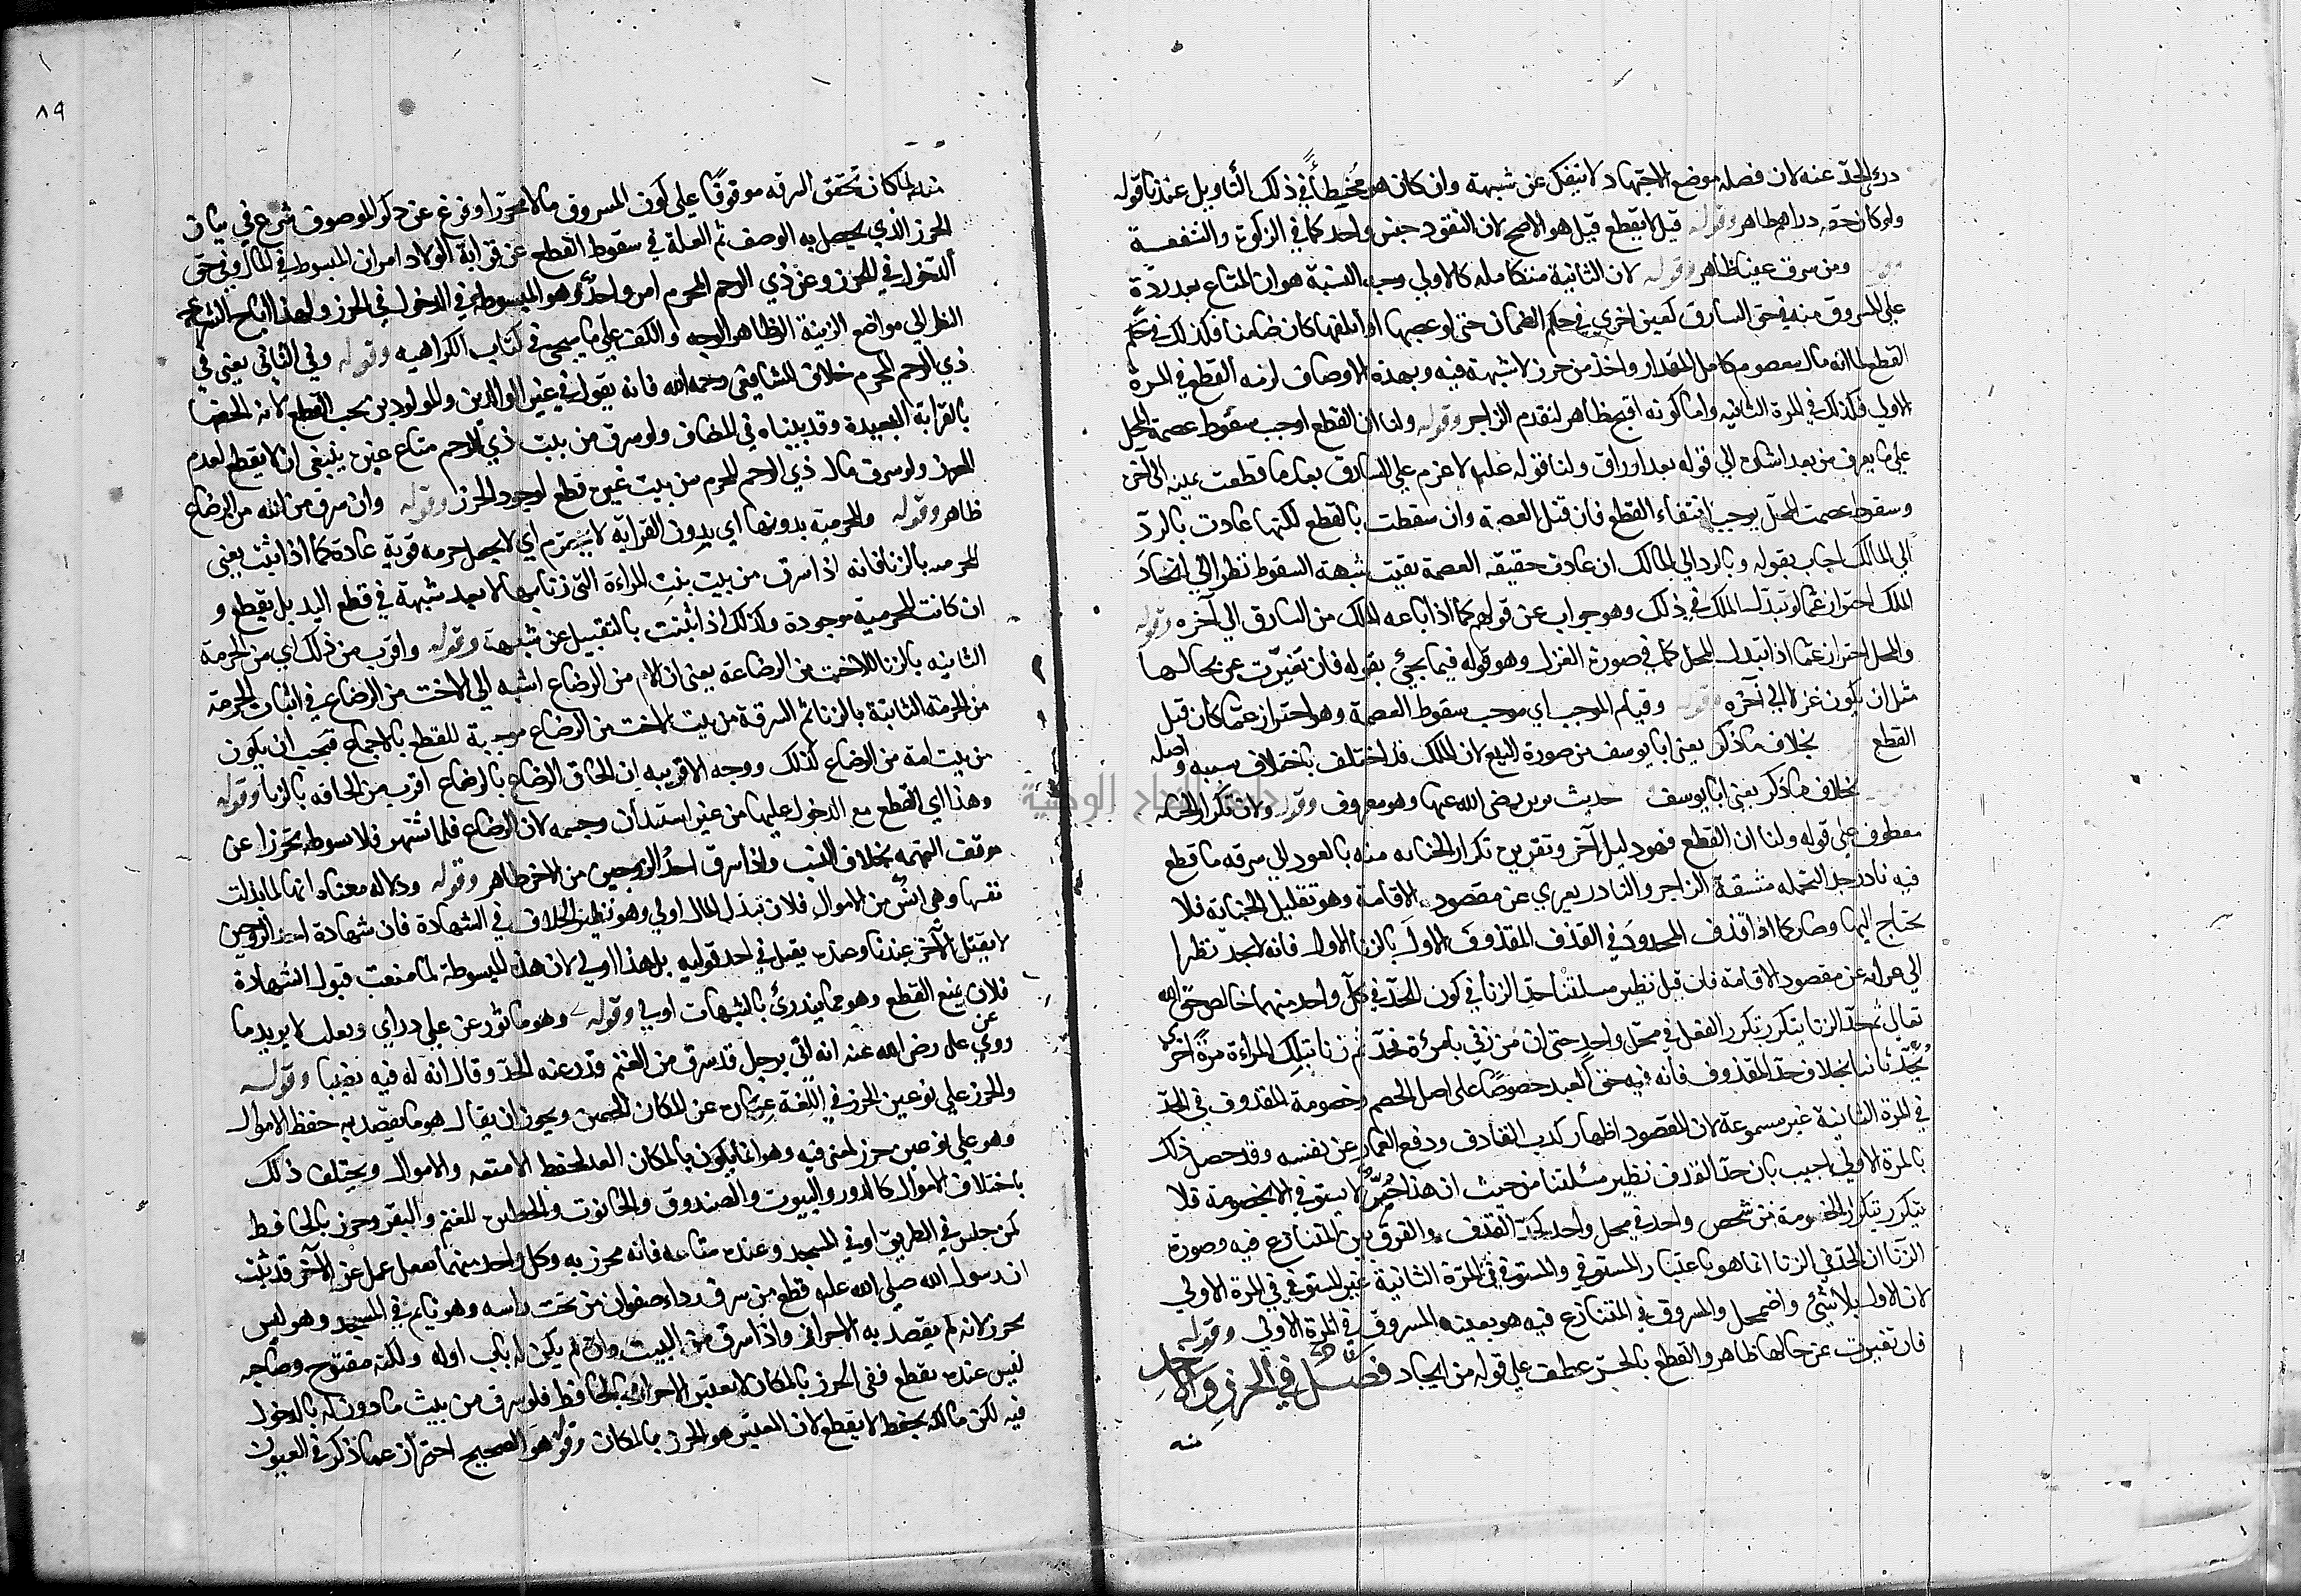 درئ الحد عنه لان فصله موضع الاجتهاد لا ينفك عن شبهة وان كان هو مُخيطأً في ذلك التأويل عندنا قوله
ولو كان حقه دراهم ظاهر وقوله قيل لا يقطع قيل هو الاصح لان النقود جنس واحد كما في الزكوة والشفعة
ومن سرق عينا ظاهر وقوله لان الثانية متكاملة كالاولي وجه النسبة هو ان المتاع بعد ردّة
علي المسروق منه في حق السارق كعين اخري في حكم الضمان حتي لو غصبها او اتلفها كان ضامنا فكذلك في حكم
القطع لما انه مال معصوم كامل المقدار واخذ من حرز لا شبهة فيه وبهذه الاوصاف لزمه القطع في المرة
الاولي فكذلك في المرة الثانية واما كونه اقبح ظاهر لتقدم الزاجر وقوله ولنا ان القطع اوجب سقوط عصمة المحل
علي ما يعرف من بعد اشارة الي قوله بعد اوراق ولنا قوله عليه لا غرم علي السارق بعد ما قطعت يمينه الي آخره
وسقوط عصمت المحل يوجب انتفاء القطع فان قيل العصمة وان سقطت بالقطع لكنها عادت بالردّ
الي المالك اجاب بقوله وبالرد الي المالك ان عادت حقيقة العصمة بقيت شبهة السقوط نظرا الي اتحاد
الملك احتراز عما لو تبدّل الملك في ذلك وهو جواب عن قولهم كما اذا باعه المالك من السارق الي آخره وقوله
والمحل احتراز عما اذا تبدل المحل كما في صورة الغزل وهو قوله فيما يجئ بقوله فان تغيرت عن حالها
مثل ان يكون غزلا الي آخره وقوله وقيام الموجب اي موجب سقوط العصمة وهو احتراز عمّا كان قبل
القطع بخلاف ما ذكر يعني ابا يوسف من صورة البيع لان الملك قد اختلف باختلاف سببه واصله
بخلاف ما ذكر يعني ابا يوسف حديث بريرة رضي الله عنها وهو معروف وقوله ولان تكرار الجناية
معطوف علي قوله ولنا ان القطع فهو دليل آخر وتقريره تكرار الجناية منه بالعود الي سرقه ما قطع
فيه نادر جدا لتحمله مشقة الزاجر والنادر يعري عن مقصود الاقامة وهو تقليل الجناية فلا
يحتاج اليها وصار كما اذا قذف المحدود في القذف المقذوف الاول بالزنا الاول فانه لا يحد نظرا
الي عرائه عن مقصود الاقامة فان قيل نظير مسئلتنا حدّ الزنا في كون الحدّ في كلّ واحد منهما خالص حق الله
تعالي ثم حدّ الزنا يتكرر بتكرر الفعل في محلّ واحد حتي ان من زني بامرءة فحدّ ثم زنا بتلك المراءة مرّة اخري
يحدّ ثانيا بخلاف حدّ المقذوف فانه فيه حق العبد خصوصا علي اصل الخصم وخصومة المقذوف في الحد
في المرة الثانية غير مسموعة لان المقصود اظهار كذب القاذف ودفع العار عن نفسه وقد حصل ذلك
بالمرة الاولي اجيب بان حدّ القذف نظير مسئلتنا من حيث ان هذا حدّ لا يستوفي الا بخصومة فلا
يتكرر بتكرر الخصومة من شخص واحد في محل واحد كحدّ القذف والفرق بين المتنازع فيه وصورة
الزنا ان الحدّ في الزنا انما هو باعتبار المستوفي والمستوفي في المرّة الثانية غير المستوفي في المرة الاولي
لان الاول تلاشئ واضمحل والمسروق في المتنازع فيه هو بعينه المسروق في المرة الاولي وقوله
فان تغيرت عن حالها ظاهر والقطع بالجر عطف علي قوله من ايجاد فصل في الحرز والاخذ
منه
٨٩
منه لما كان تحقق السرقه موقوفا علي كون المسروق مالا محرزا وفرغ عن ذكر الموصوف شرع في بيان
الحرز الذي يحصل به الوصف ثم العلة في سقوط القطع عن قرابة الولاد امران البسوطة في المال وفي حق
الدخول في الحرز وعن ذي الرحم المحرم امر واحد وهو البسوطة في الدخول في الحرز ولهذا اباح الشرع
النظر الي مواضع الزينة الظاهر الوجه والكف علي ما سيجئ في كتاب الكراهيه وقوله وفي الثاني يعني في
ذي الرحم المحرم خلاف الشافعي رحمه الله فانه يقول في غير الوالدين والمولودين يجب القطع لانه الحقها
بالقرابة البعيدة وقد بيناه في المضاف ولو سرق من بيت ذي الرحم متاع غيره ينبغي ان لا يقطع لعدم
الحرز ولو سرق مال ذي الرحم المحرم من بيت غيره قطع لوجود الحرز وقوله وان سرق من امه من الرضاع
ظاهر وقوله والمحرمية بدونها اي بدون القرابة لا يحترم اي لا يحصل حرمه قوية عادة كما اذا ثبت يعني
المحرمه بالزنا فانه اذا سرق من بيت بنت المراءة التي زنا بها لا يعد شبهة في قطع اليد بل يقطع و
ان كانت المحرمية موجودة وكذلك اذا ثبتت بالتقبيل عن شبهة وقوله واقرب من ذلك اي من الحرمة
الثانيه بالزنا الاخت من الرضاعة يعني ان الام من الرضاع اشبه الي الاخت من الرضاع في اثبات الحرمة
من الحرمة الثابتة بالزنا ثم السرقة من بيت الاخت من الرضاع موجبة للقطع بالاجماع فيجب ان يكون
من بيت امه من الرضاع كذلك ووجه الاقربيه ان الحاق الرضاع بالرضاع اقرب من الحاقه بالزنا وقوله
وهذا اي القطع مع الدخول عليها من غير استيذان وحسمه لان الرضاع قلما اشتهر فلا بسوطه تحرزا عن
موقف التهمه بخلاف النسب واذا سرق احد الزوجين من الاخر ظاهر وقوله ودلاله معناه انها لما بذلت
نفسها وهي انفس من الاموال فلان تبذل المال اولي وهو نظير الخلاف في الشهادة فان شهادة احد الزوجين
لا يقبل الآخر عندنا وعنده يقبل في احد قوليه بل هذا اولي لان هذه البسوطة لما منعت قبول الشهادة
فلان يمنع القطع وهو مما يندرئ بالشبهات اولي وقوله وهو مأثور عن علي
روي عن علي رضي الله عنه انه اتي برجل قد سرق من الغنم فدرء عنه الحدّ وقال انه له فيه نصيبا وقوله
والحرز علي نوعين الحرز في اللغة عبارة عن المكان الحصين ويجوز ان يقال هو ما يقصد به حفظ الاموال
وهو علي نوعين حرز لمعني فيه وهو انما يكون بالمكان المعد لحفظ الامتعه والاموال ويختلف ذلك
باختلاف الاموال كالدور والبيوت والصندوق والحانوت والحظيره للغنم والبقر وحرز بالحافظ
كمن جلس في الطريق او في المسجد وعنده متاعه فانه محرز به وكل واحد منهما يعمل عمل غير الآخر قد ثبت
ان رسول الله صلي الله عليه قطع من سرق رداء صفوان من تحت راسه وهو نايم في المسجد وهو ليس
بحرز لانه لم يقصد به الاحراز واذا سرق من البيت وان لم يكن له باب اوله ولكنه مفتوح وصاحبه
ليس عنده يقطع ففي الحرز بالمكان لا يعتبر الاحراز بالحافظ فلو سرق من بيت ماذون له بالدخول
فيه لكن مالكه يحفظ لا يقطع لان المعتبر هو الحرز بالمكان وقوله هو الصحيح احتراز عما ذكر في العيون